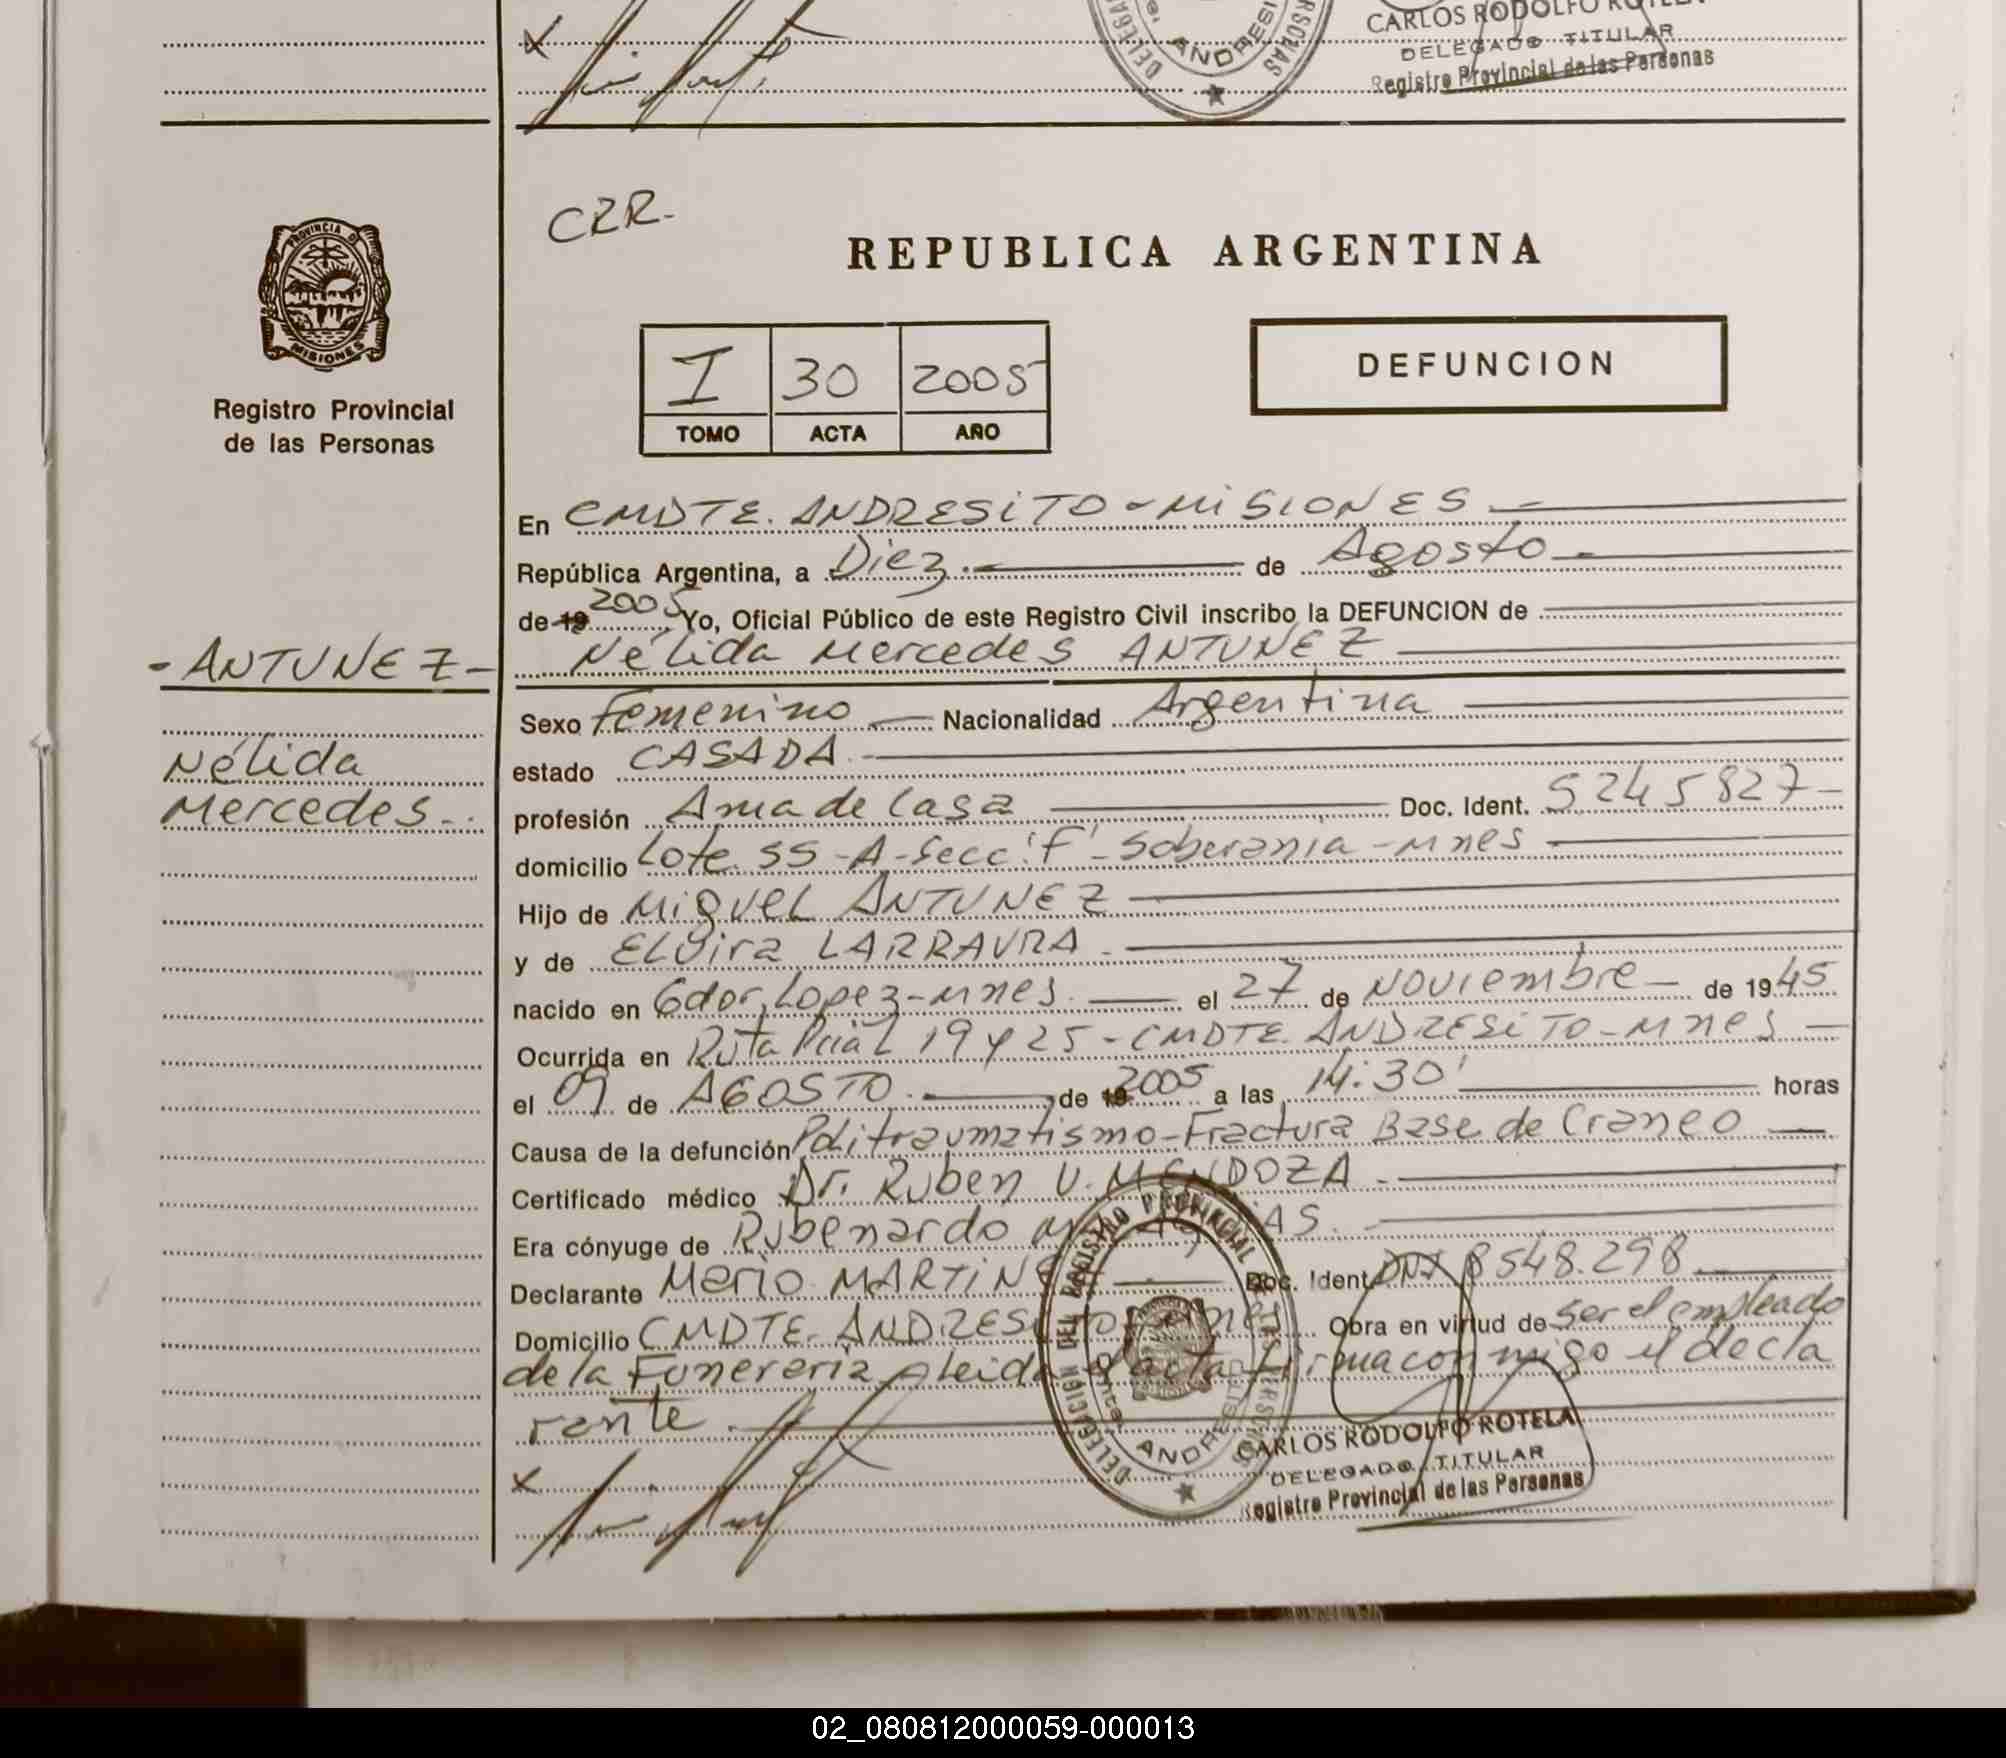 CARLOS RODOLFO ROTELA
DELEGADO TITULAR
Registro Provincial de las Personas
ANDRESI
CRR-
REPUBLICA ARGENTINA
PROVINCIA DE
MISIONES
Registro Provincial
de las Personas
I 30 2005
TOMO ACTA AÑO
DEFUNCION
En CMDTE. ANDRESITO - MISIONES
República Argentina, a Diez de Agosto
de 19 2005 Yo, Oficial Público de este Registro Civil inscribo la DEFUNCION de
- ANTUNEZ -
Nélida Mercedes ANTUNEZ
Sexo Femenino Nacionalidad Argentina
Nélida
Mercedes
estado CASADA
profesión Ama de Casa Doc. Ident. 5245827
domicilio Lote 55-A-Secc "F" - Soberania - Mnes
Hijo de Miguel ANTUNEZ
y de Elvira LARRAURA
nacido en Gdor. Lopez - Mnes. el 27 de Noviembre de 1945
Ocurrida en Ruta Pcial 19 y 25 - CMDTE. ANDRESITO - Mnes
el 09 de AGOSTO de 19 2005 a las 14:30' horas
Causa de la defunción Politraumatismo - Fractura Base de Craneo
Certificado médico Dr. Ruben V. MENDOZA
Era cónyuge de Rubenardo
Declarante Mario MARTINEZ Doc. Ident. DNI 8548.298
Domicilio CMDTE. ANDRESITO - Mnes Obra en virtud de ser el empleado
de la Funereria leida el acta firma conmigo el decla
rante.
x
DELEGACION DEL REGISTRO PROVINCIAL DE LAS PERSONAS
Cmte. ANDRESITO
CARLOS RODOLFO ROTELA
DELEGADO TITULAR
Registro Provincial de las Personas
02_080812000059-000013